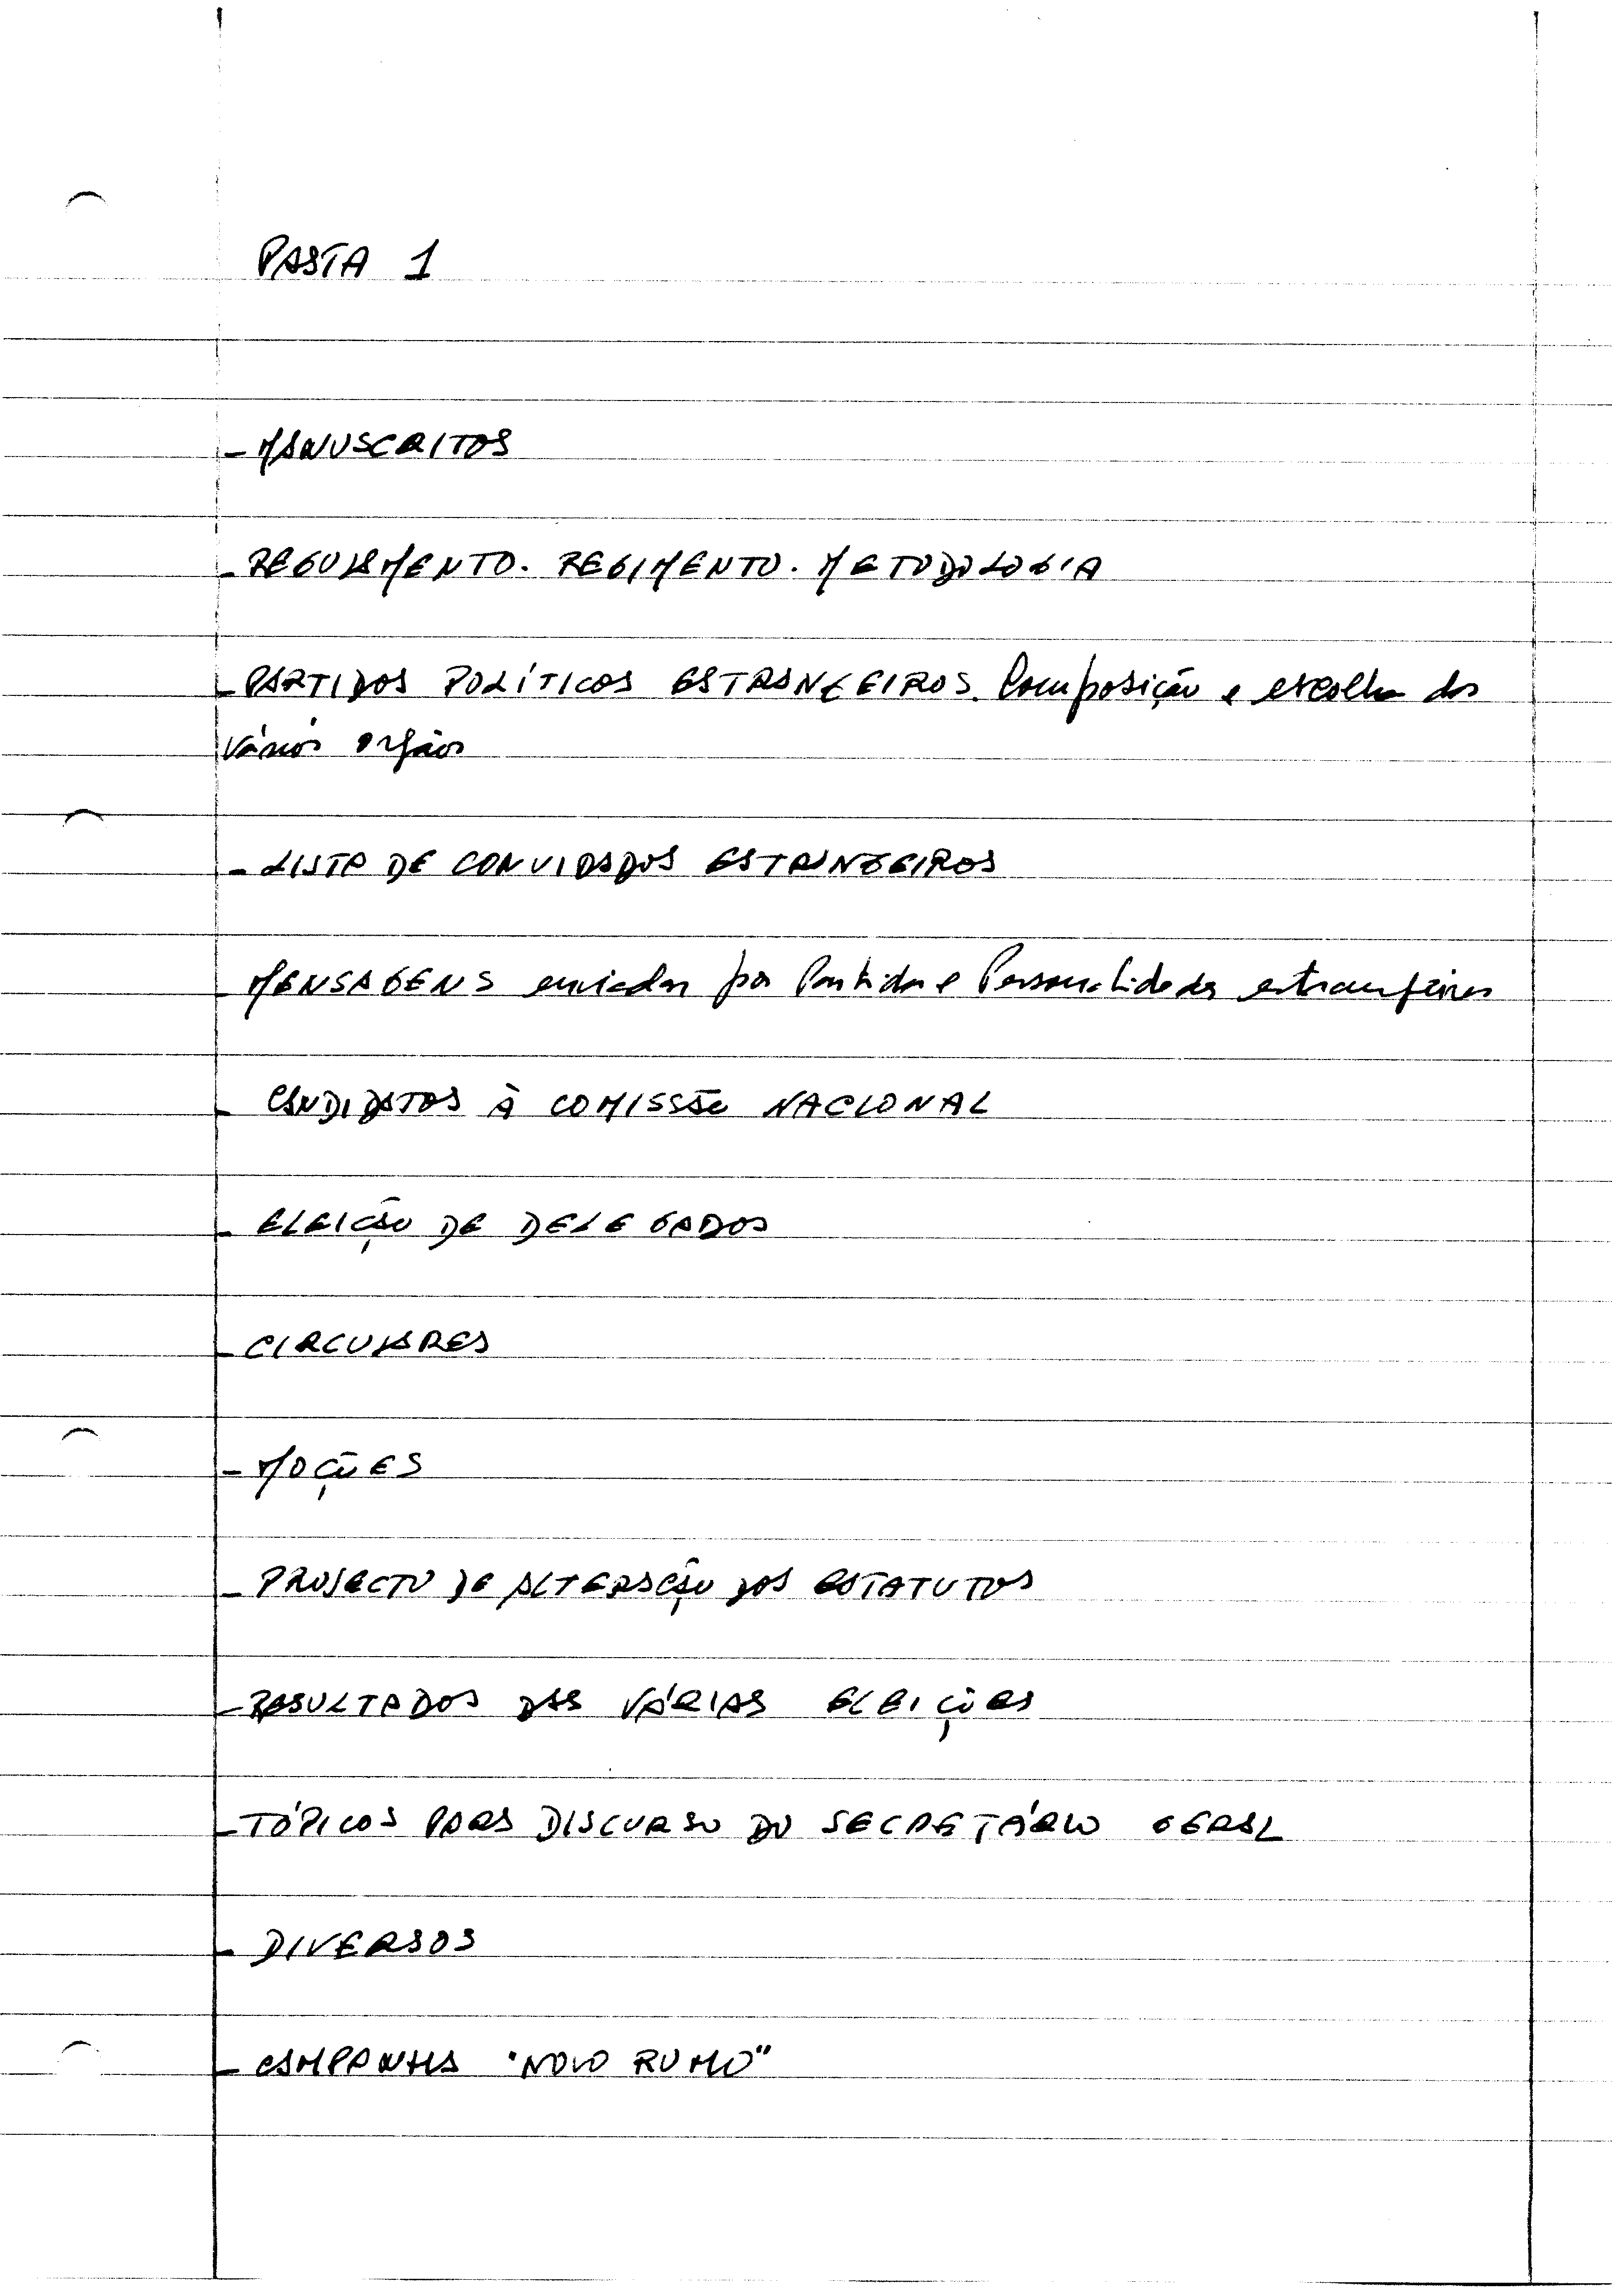 PASTA 1
- MANUSCRITOS
- REGULAMENTO. REGIMENTO. METODOLOGIA
- PARTIDOS POLÍTICOS ESTRANGEIROS. Composição e escolha dos
vários orgãos
- LISTA DE CONVIDADOS ESTRANGEIROS
- MENSAGENS enviadas por Partidos e Personalidades estrangeiras
- CANDIDATOS À COMISSÃO NACIONAL
- ELEIÇÃO DE DELEGADOS
- CIRCULARES
- MOÇÕES
- PROJECTO DE ALTERAÇÃO DOS ESTATUTOS
- RESULTADOS DAS VÁRIAS ELEIÇÕES
- TÓPICOS PARA DISCURSO DO SECRETÁRIO GERAL
- DIVERSOS
- CAMPANHA "NOVO RUMO"